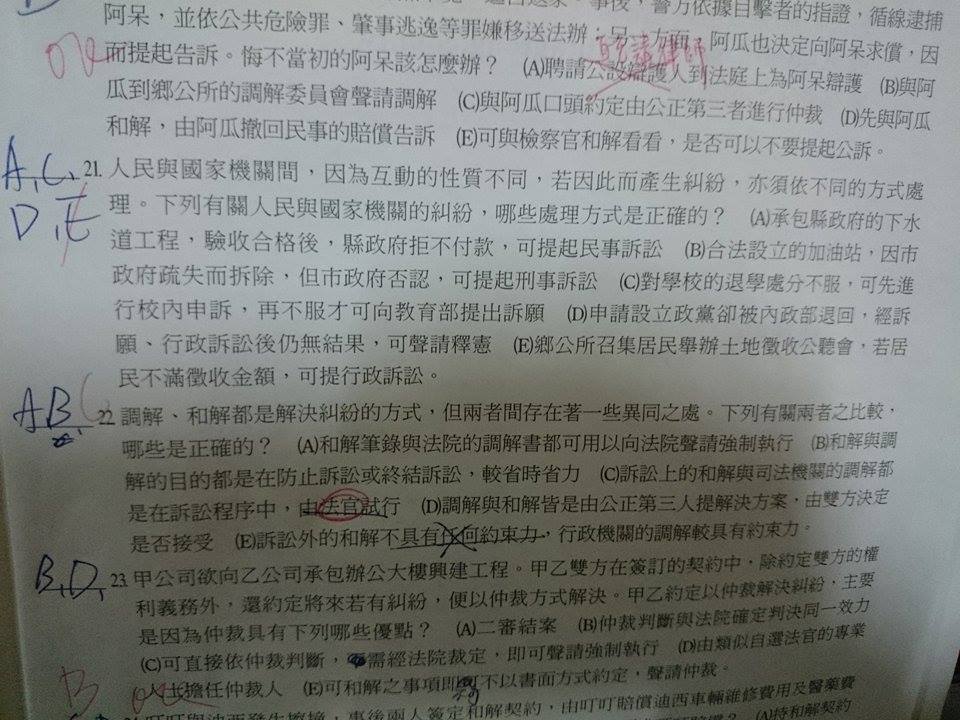 阿呆，並依公共危險罪、肇事逃逸等罪嫌移送法辦，另一方面，阿瓜也決定向阿呆求償，因
而提起告訴。悔不當初的阿呆該怎麼辦？ (A)聘請公設辯護人到法庭上為阿呆辯護 (B)與阿
瓜到鄉公所的調解委員會聲請調解 (C)與阿瓜口頭約定由公正第三者進行仲裁 (D)先與阿瓜
和解，由阿瓜撤回民事的賠償告訴 (E)可與檢察官和解看看，是否可以不要提起公訴。
A, C,
D, E
21. 人民與國家機關間，因為互動的性質不同，若因此而產生糾紛，亦須依不同的方式處
理。下列有關人民與國家機關的糾紛，哪些處理方式是正確的？ (A)承包縣政府的下水
道工程，驗收合格後，縣政府拒不付款，可提起民事訴訟 (B)合法設立的加油站，因市
政府疏失而拆除，但市政府否認，可提起刑事訴訟 (C)對學校的退學處分不服，可先進
行校內申訴，再不服才可向教育部提出訴願 (D)申請設立政黨卻被內政部退回，經訴
願、行政訴訟後仍無結果，可聲請釋憲 (E)鄉公所召集居民舉辦土地徵收公聽會，若居
民不滿徵收金額，可提行政訴訟。
AB C
22. 調解、和解都是解決糾紛的方式，但兩者間存在著一些異同之處。下列有關兩者之比較，
哪些是正確的？ (A)和解筆錄與法院的調解書都可用以向法院聲請強制執行 (B)和解與調
解的目的都是在防止訴訟或終結訴訟，較省時省力 (C)訴訟上的和解與司法機關的調解都
是在訴訟程序中，由法官試行 (D)調解與和解皆是由公正第三人提解決方案，由雙方決定
是否接受 (E)訴訟外的和解不具有任何約束力，行政機關的調解較具有約束力。
B, D,
23. 甲公司欲向乙公司承包辦公大樓興建工程。甲乙雙方在簽訂的契約中，除約定雙方的權
利義務外，還約定將來若有糾紛，便以仲裁方式解決。甲乙約定以仲裁解決糾紛，主要
是因為仲裁具有下列哪些優點？ (A)二審結案 (B)仲裁判斷與法院確定判決同一效力
(C)可直接依仲裁判斷，需經法院裁定，即可聲請強制執行 (D)由類似自選法官的專業
人士擔任仲裁人 (E)可和解之事項即可不以書面方式約定，聲請仲裁。
B
叮叮與迪西發生擦撞，事後兩人簽定和解契約，由叮叮賠償迪西車輛維修費用及醫藥費